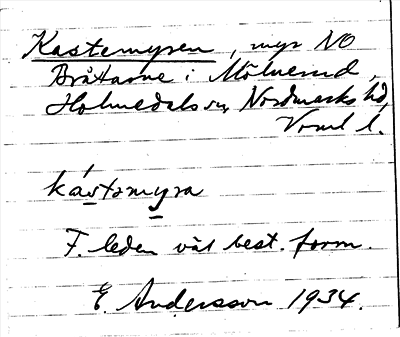 Kastemyren, myr NO
Bråtarne i Mölnerud,
Holmedals sn, Nordmarks hd,
Vrml l.
kástəmyra
F. leden väl best. form.
E. Andersson 1934.